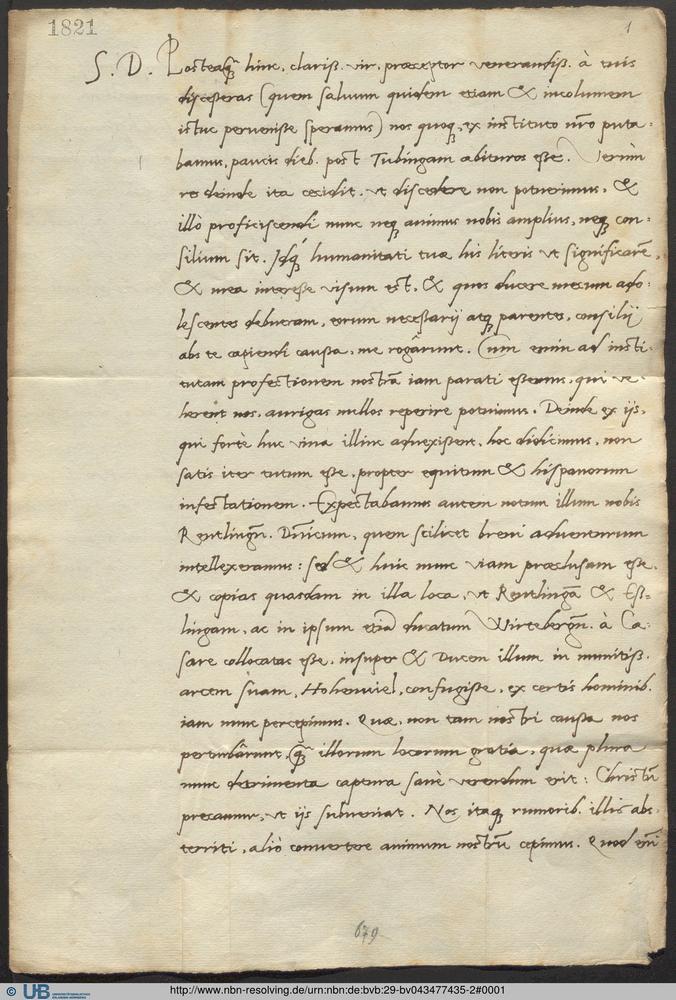 1821
1
S. D. Posteaq̃ hinc, clariß. vir, præceptor venerandiß. à tuis
discesseras (quem saluum quidem etiam & incolumem
istuc peruenisse speramus) nos quoq, ex instituto nr̃o puta-
bamus, paucis dieb. post Tubingam abituros esse. Verùm
res deinde ita cecidit, vt discedere non potuerimus, &
illò proficiscendi nunc neq animus nobis amplius, neq con-
silium sit. Idq́ humanitati tuæ his literis vt significarẽ,
& mea interesse visum est, & quos ducere mecum ado-
lescentes debueram, eorum necessarij atq parentes, consilij
abs te capiendi caussa, me rogârunt. Cum enim ad insti-
tutam profectionem nostrã iam parati essemus, qui ve-
herent nos, aurigas nullos reperire potuimus. Deinde ex ijs,
qui fortè huc vina illinc aduexissent, hoc didicimus, non
satis iter tutum esse, propter equitum & hispanorum
infestationem. Expectabamus autem notum illum nobis
Reutlingñ. Dñicum, quem scilicet breui aduenturum
intellexeramus: sed & huic nunc viam præclusam esse,
& copias quasdam in illa loca, vt Reutlingã & Eß-
lingam, ac in ipsum etiã ducatum Wirtebergñ. à Cæ-
sare collocatas esse, insuper & Ducem illum in munitiß.
arcem suam, Hohenwiel, confugisse, ex certis hominib.
iam nunc percepimus. Quæ, non tam nostri caussa nos
perturbârunt, q̃ illorum locorum gratia, quæ plura
nunc detrimenta captura sanè verendum erit: Christũ
precamur, vt ijs subueniat. Nos itaq rumorib. illis abs-
territi, aliò conuertere animum nostrũ cepimus. Quod em̃
679
© UB
http://www.nbn-resolving.de/urn:nbn:de:bvb:29-bv043477435-2#0001